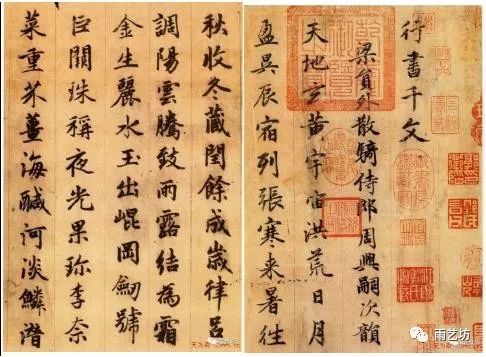 行書千文
梁員外散騎侍郎周興嗣次韻
天地玄黃宇宙洪荒日月
盈昃辰宿列張寒来暑往
秋收冬藏閏餘成歲律呂
調陽雲騰致雨露結為霜
金生麗水玉出崐岡劒號
巨闕珠稱夜光果珍李柰
菜重芥薑海鹹河淡鱗潛
雨艺坊